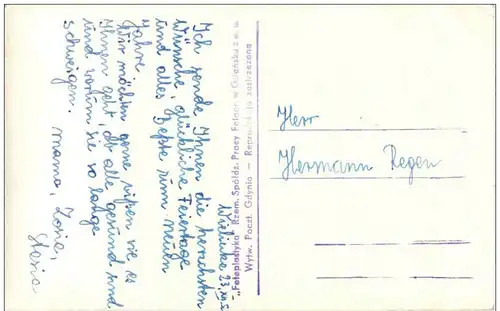 Ich sende Ihnen die herzlichsten
Wünsche, glückliche Feiertage
und alles Beste zum neuen
Jahre.
Wir möchten gerne wissen wie es
Ihnen geht, ob alle gesund sind
und warum sie so lange
schweigen. Mama, Zosia,
Stasia
23.XII.
"Fotoplastykon" Rzem. Spółdz. Pracy Fotogr. w Gdańsku z o. u.
Wytw. Poczt. Gdynia — Reprodukcja zastrzeżona
Herr
Hermann Regen